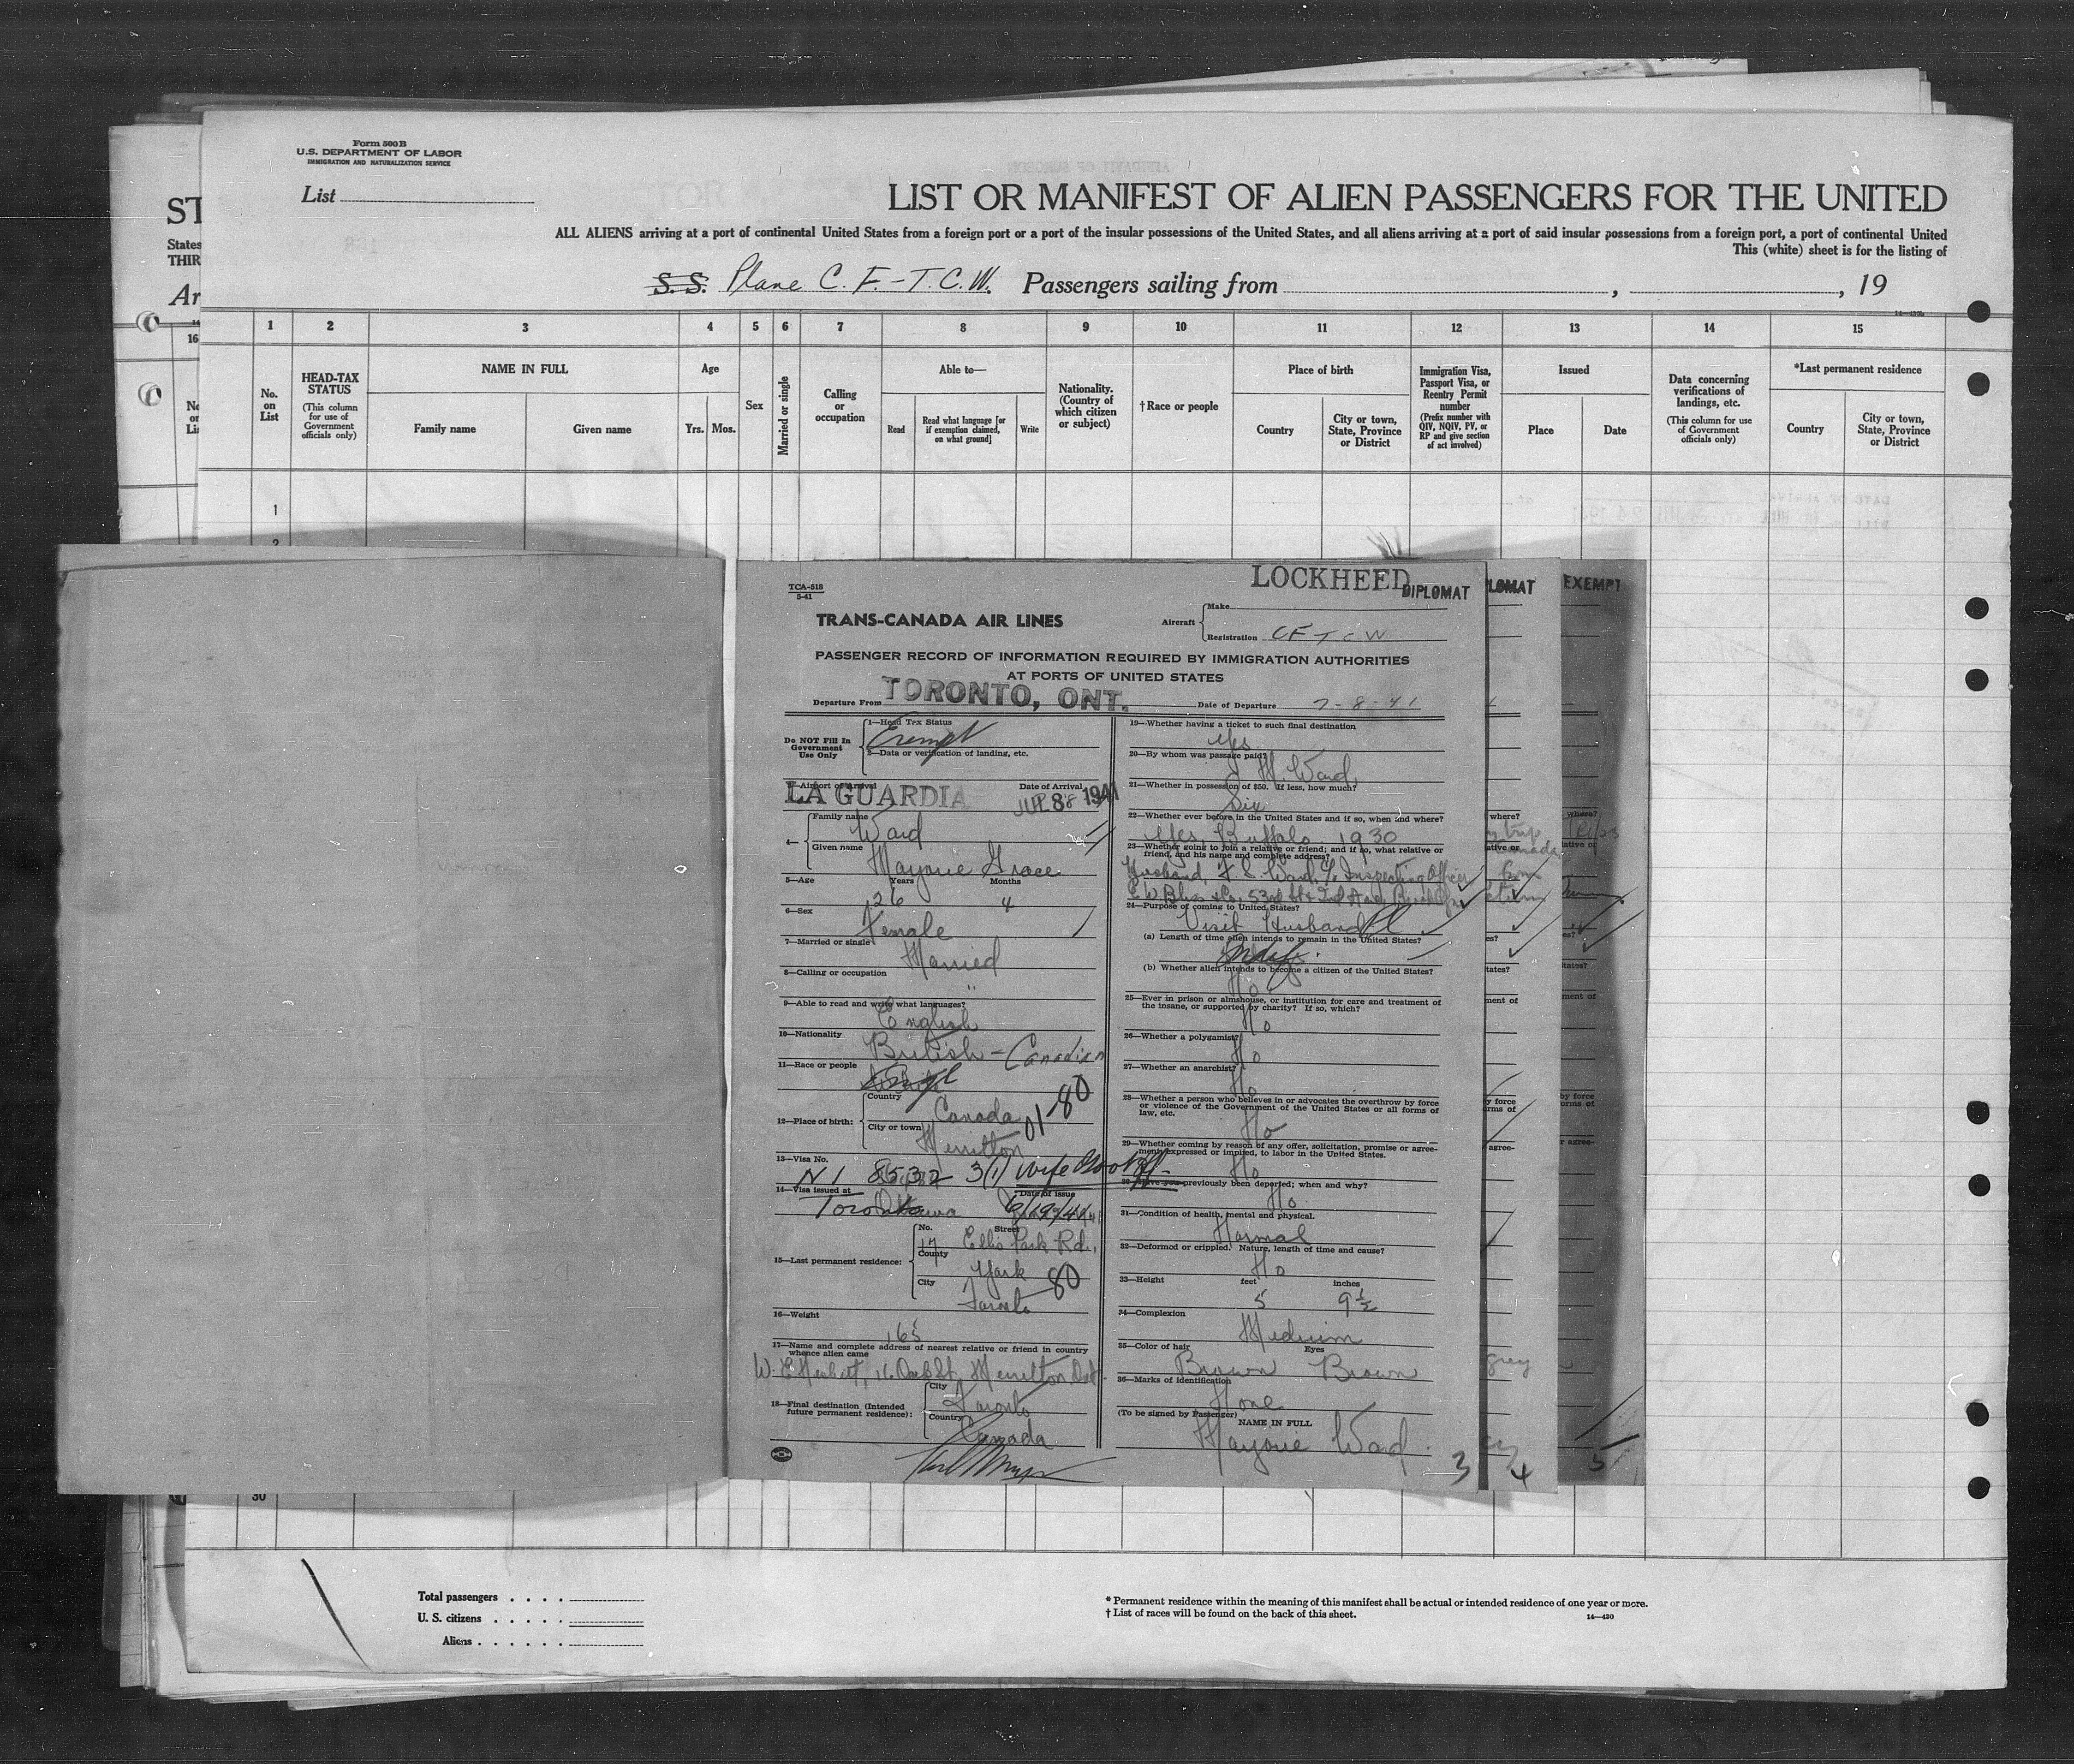 Form 500B
U.S. DEPARTMENT OF LABOR
IMMIGRATION AND NATURALIZATION SERVICE
List
LIST OR MANIFEST OF ALIEN PASSENGERS FOR THE UNITED
ST
States
THIR
Ar
ALL ALIENS arriving at a port of continental United States from a foreign port or a port of the insular possessions of the United States, and all aliens arriving at a port of said insular possessions from a foreign port, a port of continental United
This (white) sheet is for the listing of
S.S. Plane C.F.-T.C.W. Passengers sailing from , , 19
1 2 3 4 5 6 7 8 9 10 11 12 13 14 15
16
No. on List
HEAD-TAX STATUS
(This column for use of Government officials only)
NAME IN FULL
Family name
Given name
Age
Yrs.
Mos.
Sex
Married or single
Calling or occupation
Able to—
Read
Read what language [or if exemption claimed, on what ground]
Write
Nationality. (Country of which citizen or subject)
†Race or people
Place of birth
Country
City or town, State, Province or District
Immigration Visa, Passport Visa, or Reentry Permit number
(Prefix number with QIV, NQIV, PV, or RP and give section of act involved)
Issued
Place
Date
Data concerning verifications of landings, etc.
(This column for use of Government officials only)
*Last permanent residence
Country
City or town, State, Province or District
1
2
TCA-518
5-41
LOCKHEED
DIPLOMAT
LOMAT
EXEMPT
TRANS-CANADA AIR LINES
Aircraft
Make
Registration CF TCW
PASSENGER RECORD OF INFORMATION REQUIRED BY IMMIGRATION AUTHORITIES
AT PORTS OF UNITED STATES
Departure From TORONTO, ONT. Date of Departure 7-8-41
Do NOT Fill In Government Use Only
1—Head Tax Status
Exempt
2—Data or verification of landing, etc.
3—Airport of Arrival Date of Arrival
LA GUARDIA JUL 8 1941
4—
Family name
Ward
Given name
Marjorie Grace
5—Age Years Months
26 4
6—Sex
Female
7—Married or single
Married
8—Calling or occupation
9—Able to read and write what languages?
English
10—Nationality
British - Canadian
11—Race or people
Engl
12—Place of birth:
Country
Canada
City or town
Merritton
01-80
13—Visa No.
N I 8532 3(1) Wife
14—Visa issued at Date of issue
Toronto 6/19/41
15—Last permanent residence:
No. Street
17 Ellis Park Rd.,
County
York
City
Toronto
80
16—Weight
165
17—Name and complete address of nearest relative or friend in country whence alien came
W. E. Herbert, 16 Oak St, Merritton Ont.
18—Final destination (Intended future permanent residence):
City
Toronto
Country
Canada
19—Whether having a ticket to such final destination
Yes
20—By whom was passage paid?
M. Ward
21—Whether in possession of $50. If less, how much?
Six
22—Whether ever before in the United States and if so, when and where?
Yes, Buffalo 1930
23—Whether going to join a relative or friend; and if so, what relative or friend, and his name and complete address?
Husband, F. S. Ward, c/o Inspecting Officer
E W Bliss Co, 53rd St & 2nd Ave, Brooklyn
24—Purpose of coming to United States?
Visit Husband
(a) Length of time alien intends to remain in the United States?
Indef.
(b) Whether alien intends to become a citizen of the United States?
No
25—Ever in prison or almshouse, or institution for care and treatment of the insane, or supported by charity? If so, which?
No
26—Whether a polygamist?
No
27—Whether an anarchist?
No
28—Whether a person who believes in or advocates the overthrow by force or violence of the Government of the United States or all forms of law, etc.
No
29—Whether coming by reason of any offer, solicitation, promise or agreement, expressed or implied, to labor in the United States.
No
30—Have you previously been deported; when and why?
No
31—Condition of health, mental and physical.
Normal
32—Deformed or crippled. Nature, length of time and cause?
No
33—Height feet inches
5 9½
34—Complexion
Medium
35—Color of hair Eyes
Brown Brown
36—Marks of identification
None
(To be signed by Passenger) NAME IN FULL
Marjorie Ward
3
4
5
30
Total passengers
U. S. citizens
Aliens
* Permanent residence within the meaning of this manifest shall be actual or intended residence of one year or more.
† List of races will be found on the back of this sheet.
14—420